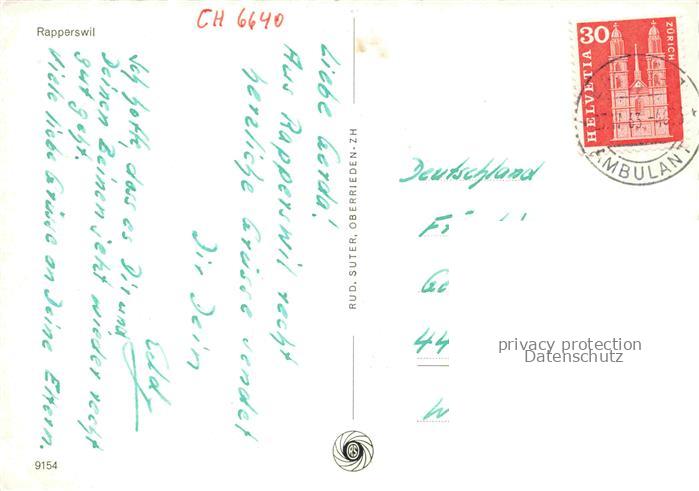 CH 6640
Rapperswil
Liebe Gerda!
Aus Rapperswil recht
herzliche Grüsse sendet
Dir Dein
Edd
Ich hoffe, dass es Dir und
Deinen Beinen jetzt wieder recht
gut geht.
Viele liebe Grüsse an Deine Eltern.
9154
RUD. SUTER, OBERRIEDEN-ZH
30
HELVETIA
ZÜRICH
AMBULAN
Deutschland
F
Ge
44
W
privacy protection
Datenschutz